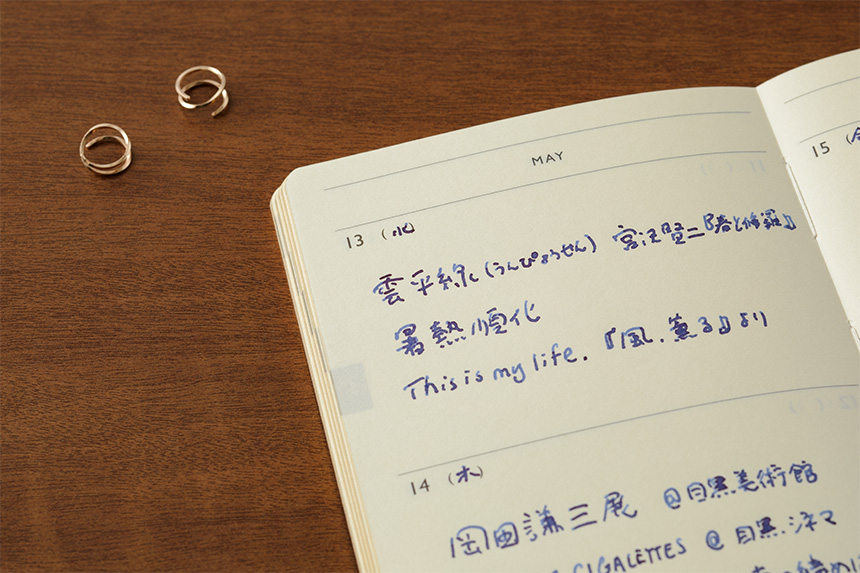 MAY
13 (水)
雲平線 (うんぴょうせん) 宮沢賢二『春と修羅』
暑熱順化
This is my life. 『風、薫る』より
14 (木)
岡田謙三展 @目黒美術館
CIGALETTES @ 目黒
15